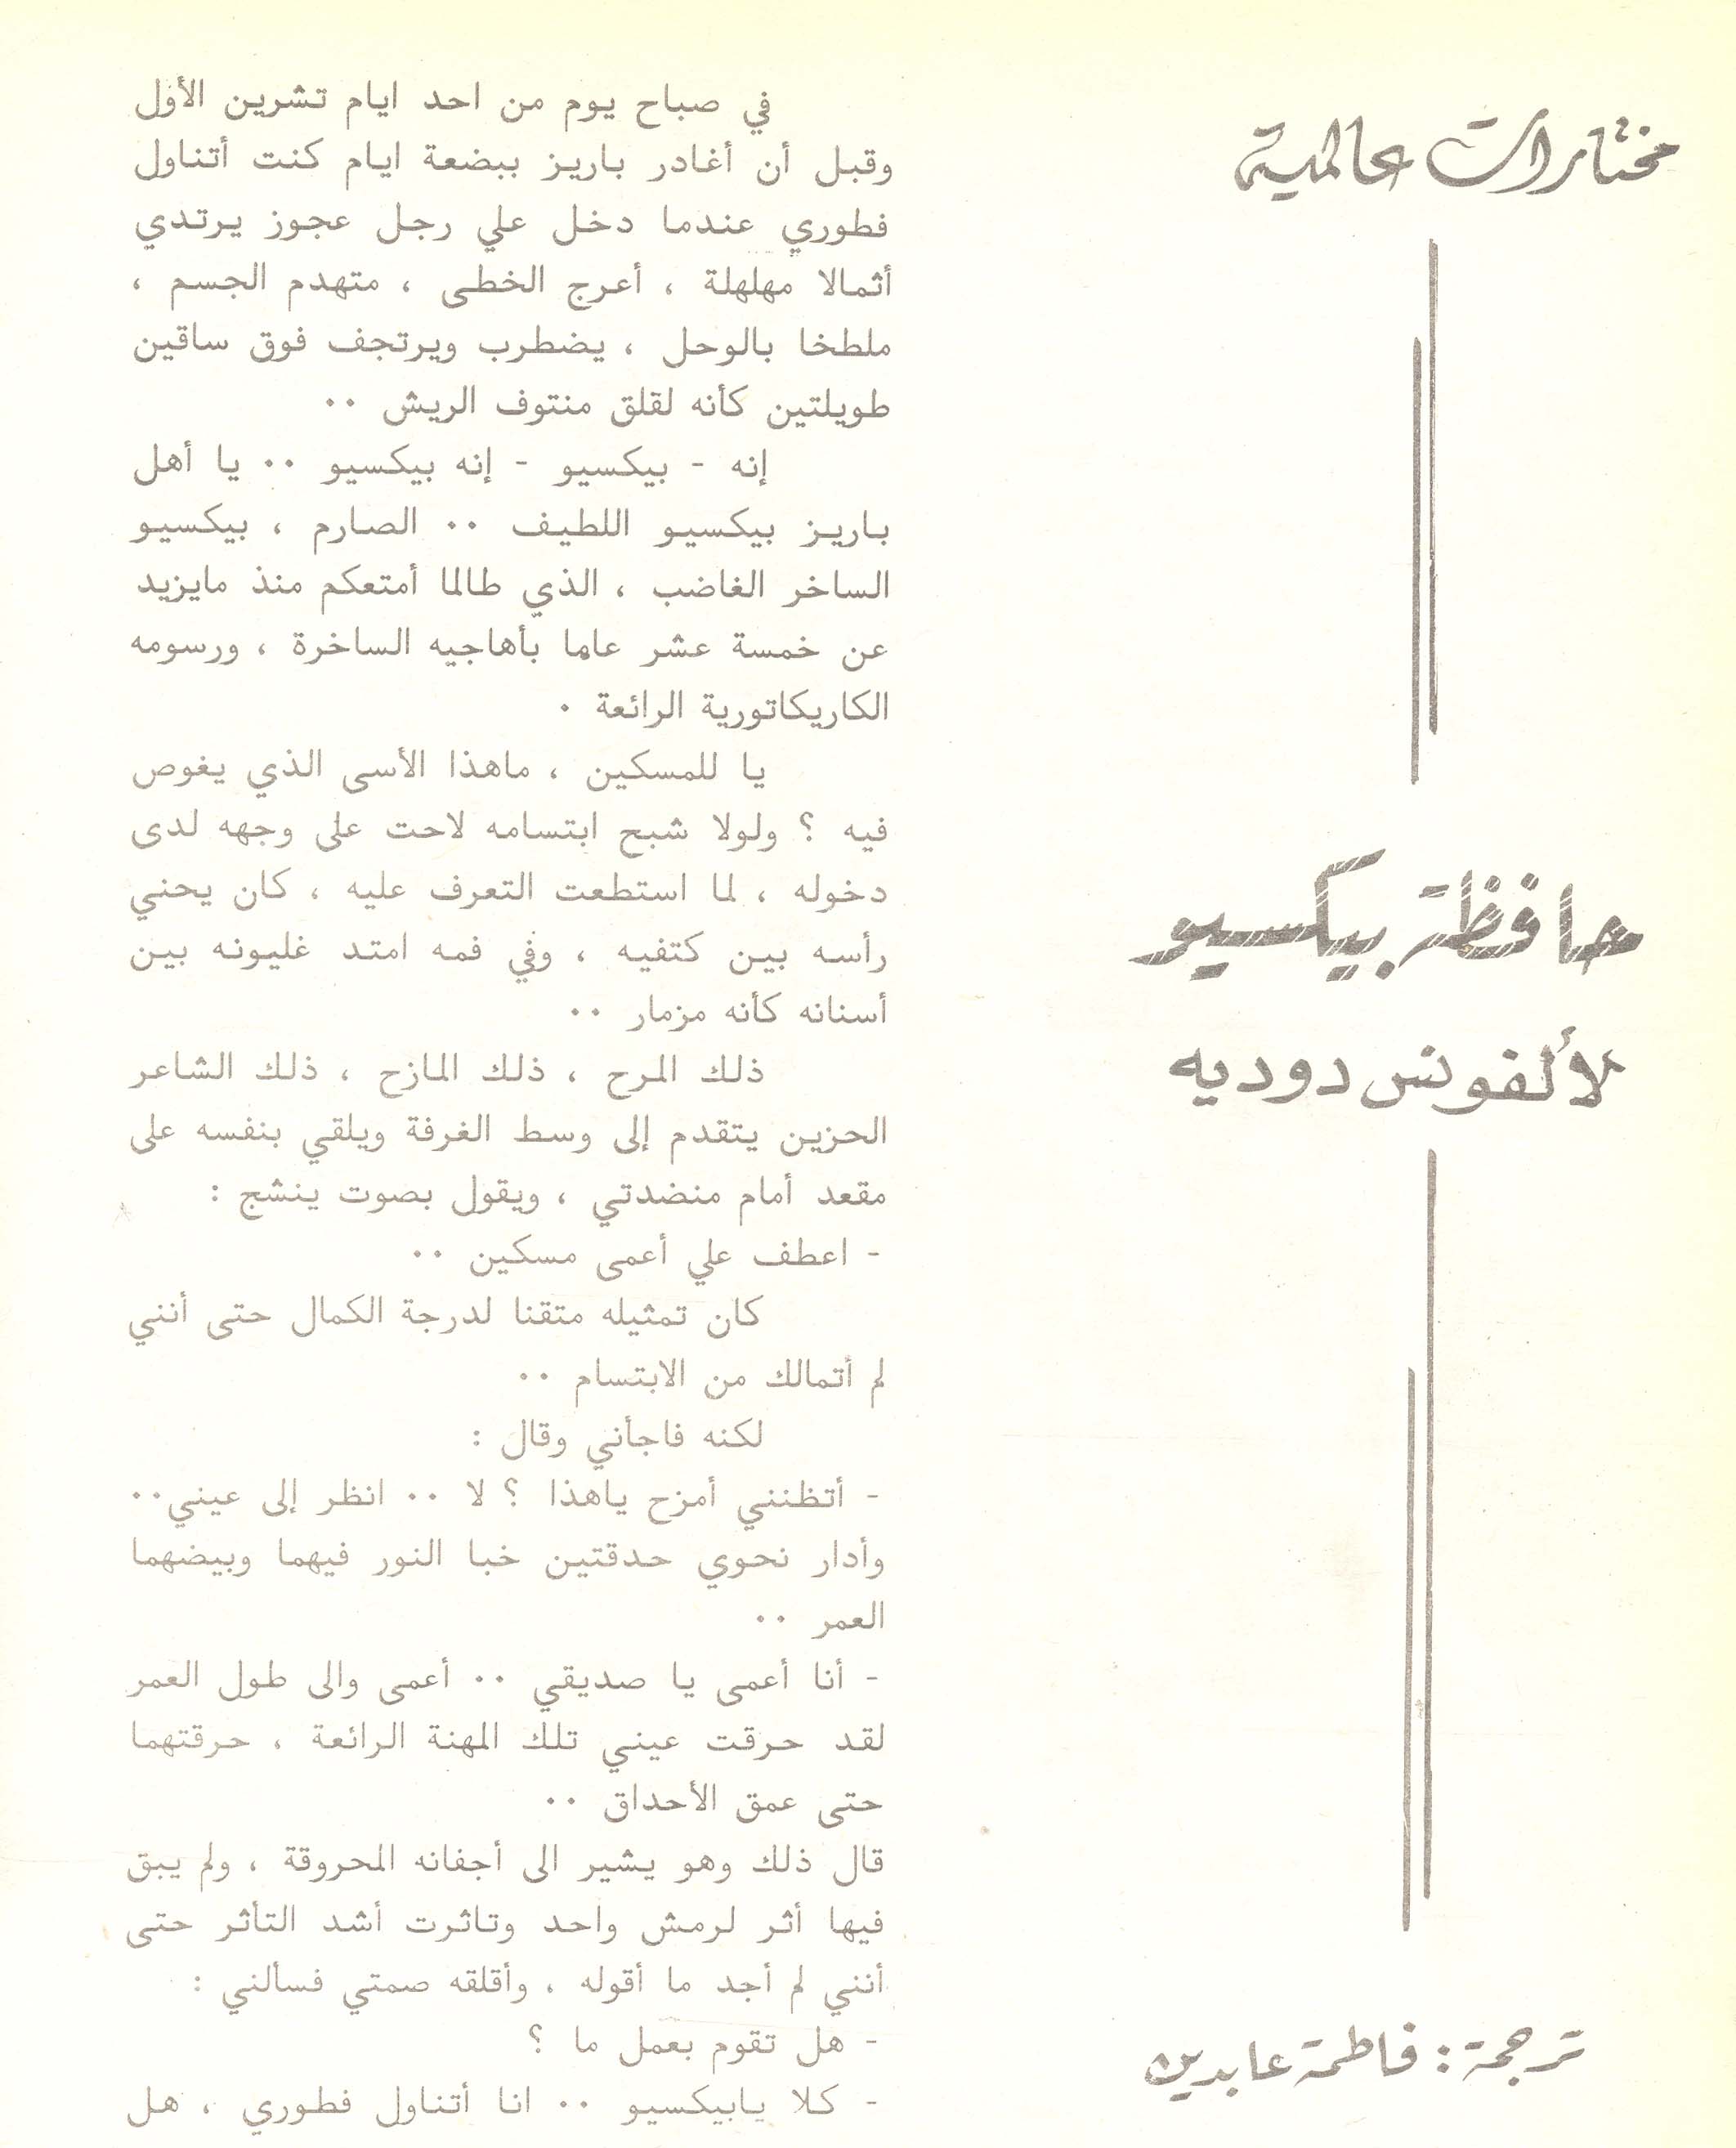 مختارات عالمية
حافظة بيكسيو
لألفونس دوديه
ترجمة : فاطمة عابدين
في صباح يوم من احد ايام تشرين الأول
وقبل أن أغادر باريز ببضعة ايام كنت أتناول
فطوري عندما دخل علي رجل عجوز يرتدي
أثمالا مهلهلة ، أعرج الخطى ، متهدم الجسم ،
ملطخا بالوحل ، يضطرب ويرتجف فوق ساقين
طويلتين كأنه لقلق منتوف الريش ..
إنه - بيكسيو - إنه بيكسيو .. يا أهل
باريز بيكسيو اللطيف .. الصارم ، بيكسيو
الساخر الغاضب ، الذي طالما أمتعكم منذ مايزيد
عن خمسة عشر عاما بأهاجيه الساخرة ، ورسومه
الكاريكاتورية الرائعة .
يا للمسكين ، ماهذا الأسى الذي يغوص
فيه ؟ ولولا شبح ابتسامه لاحت على وجهه لدى
دخوله ، لما استطعت التعرف عليه ، كان يحني
رأسه بين كتفيه ، وفي فمه امتد غليونه بين
أسنانه كأنه مزمار ..
ذلك المرح ، ذلك المازح ، ذلك الشاعر
الحزين يتقدم إلى وسط الغرفة ويلقي بنفسه على
مقعد أمام منضدتي ، ويقول بصوت ينشج :
- اعطف علي أعمى مسكين ..
كان تمثيله متقنا لدرجة الكمال حتى أنني
لم أتمالك من الابتسام ..
لكنه فاجأني وقال :
- أتظنني أمزح ياهذا ؟ لا .. انظر إلى عيني..
وأدار نحوي حدقتين خبا النور فيهما وبيضهما
العمر ..
- أنا أعمى يا صديقي .. أعمى والى طول العمر
لقد حرقت عيني تلك المهنة الرائعة ، حرقتهما
حتى عمق الأحداق ..
قال ذلك وهو يشير الى أجفانه المحروقة ، ولم يبق
فيها أثر لرمش واحد وتاثرت أشد التأثر حتى
أنني لم أجد ما أقوله ، وأقلقه صمتي فسألني :
- هل تقوم بعمل ما ؟
- كلا يابيكسيو .. انا أتناول فطوري ، هل